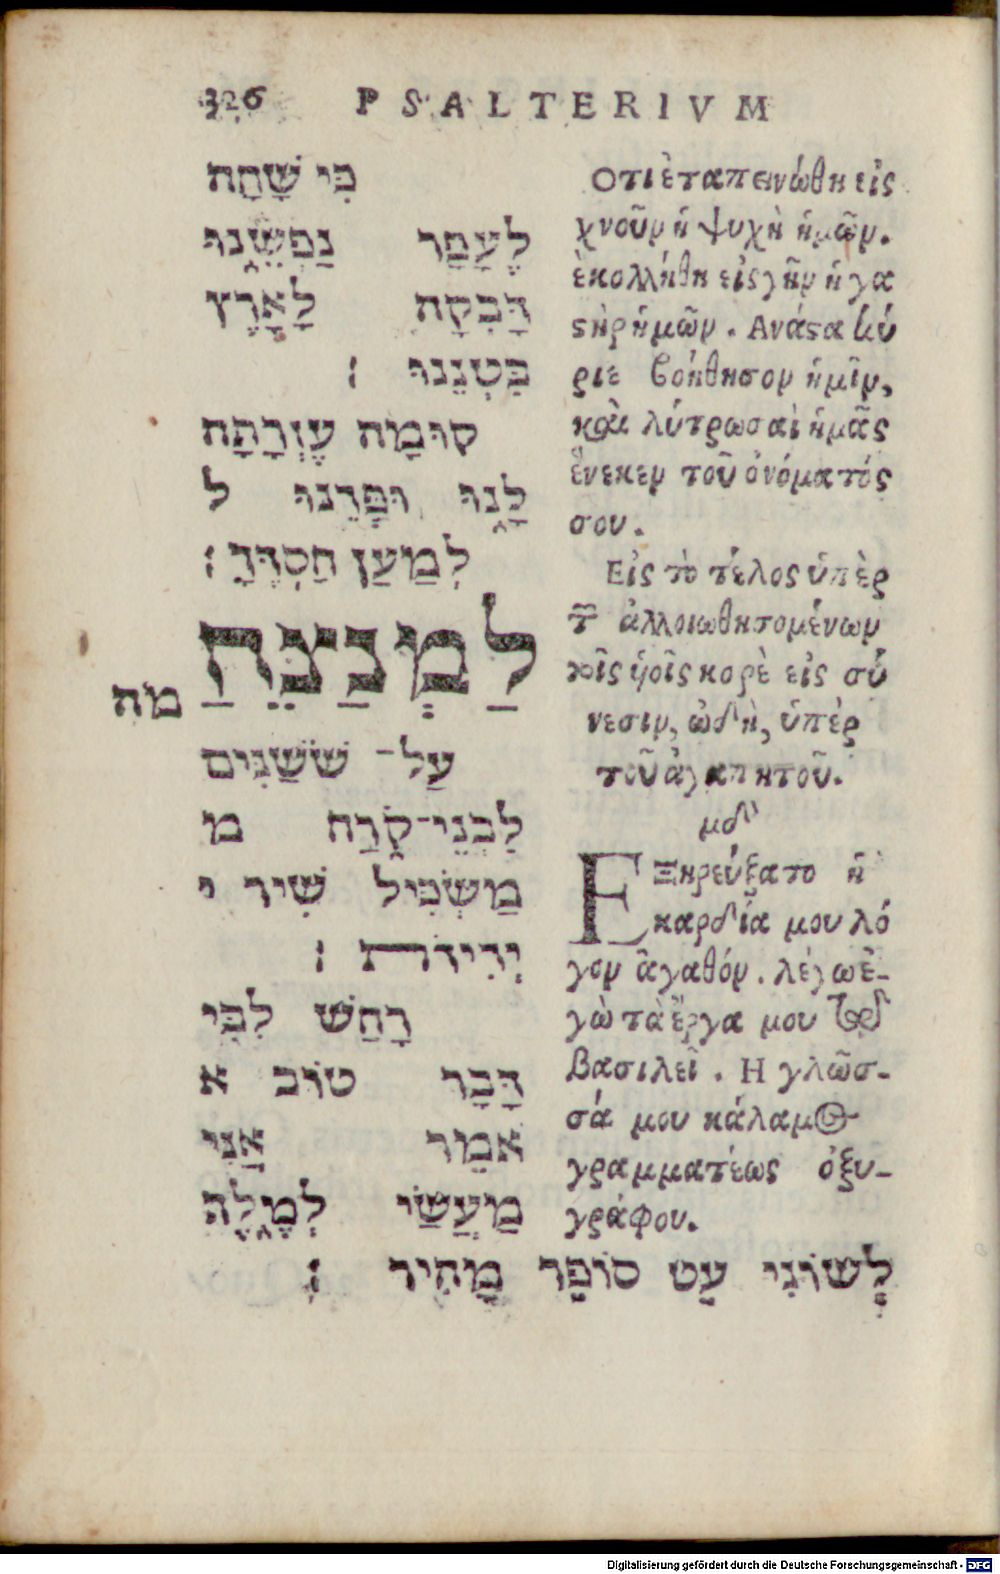 326 PSALTERIVM
כִּי שָׁחָה
לֶעָפָר נַפְשֵׁנוּ
דָּבְקָה לָאָרֶץ
בִּטְנֵנוּ :
קוּמָה עֶזְרָתָה
לָּנוּ וּפְדֵנוּ ל
לְמַעַן חַסְדֶּךָ :
לַמְנַצֵּחַ
מה
עַל־ שֹׁשַׁנִּים
לִבְנֵי־קֹרַח מ
מַשְׂכִּיל שִׁיר י
יְדִידֹת :
רָחַשׁ לִבִּי
דָּבָר טוֹב א
אֹמֵר אָנִי
מַעֲשַׂי לְמֶלֶךְ
לְשׁוֹנִי עֵט סוֹפֵר מָהִיר :
Οτι ἐταπεινώθη εἰς
χνοῦν ἡ ψυχὴ ἡμῶν.
ἐκολλήθη εἰς γῆν ἡ γα
ϛὴρ ἡμῶν . Ανάϛα κύ
ριε βοήθησον ἡμῖν,
καὶ λύτρωσαὶ ἡμᾶς
ἕνεκεν τοῦ ὀνόματός
σου.
Εἰς τὸ τέλος ὑπὲρ
τῶν ἀλλοιωθησομένων
τοῖς ὑοῖς κορὲ εἰς σύ
νεσιν, ὠδὴ, ὑπέρ
τοῦ ἀγαπητοῦ.
μδʹ
ΕΞηρεύξατο ἡ
καρδία μου λό
γον ἀγαθόν . λέγω ἐ-
γὼ τὰ ἔργα μου τῷ
Βασιλεῖ . Η γλῶσ-
σά μου κάλαμος
γραμματέως ὀξυ-
γράφου.
Digitalisierung gefördert durch die Deutsche Forschungsgemeinschaft - DFG